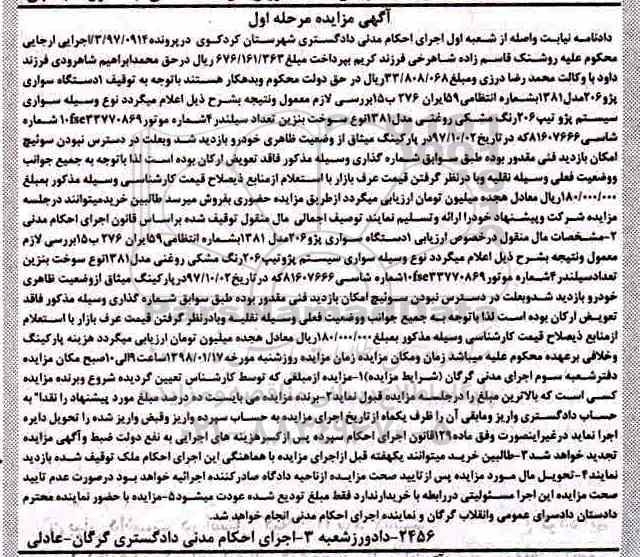 آگهی مزایده مرحله اول
دادنامه نیابت واصله از شعبه اول اجرای احکام مدنی دادگستری شهرستان کردکوی درپرونده ۳/۹۷/۰۹۱۴/اجرایی ارجایی
محکوم علیه روشنک قاسم زاده شاهرخی فرزند کریم بپرداخت مبلغ ۶۷۶/۱۶۱/۳۶۳ ریال در حق محمدابراهیم شاهرودی فرزند
داود با وکالت محمد رضا درزی ومبلغ ۳۳/۸۰۸/۰۶۸ریال در حق دولت محکوم وبدهکار هستند باتوجه به توقیف ۱دستگاه سواری
پژو۲۰۶مدل۱۳۸۱بشماره انتظامی۵۹ایران ۲۷۶ ب۱۵بررسی لازم معمول ونتیجه بشرح ذیل اعلام میگردد نوع وسیله سواری
سیستم پژو تیپ۲۰۶رنگ مشکی روغنی مدل۱۳۸۱نوع سوخت بنزین تعداد سیلندر۴شماره موتور۱۰fse۳۳۷۷۰۸۶۹شماره
شاسی۸۱۶۰۷۶۶۶که درتاریخ۹۷/۱۰/۰۲در پارکینگ میثاق از وضعیت ظاهری خودرو بازدید شد وبعلت در دسترس نبودن سوئیچ
امکان بازدید فنی مقدور بوده طبق سوابق شماره گذاری وسیله مذکور فاقد تعویض ارکان بوده است لذا باتوجه به جمیع جوانب
ووضعیت فعلی وسیله نقلیه وبا درنظر گرفتن قیمت عرف بازار با استعلام ازمنابع ذیصلاح قیمت کارشناسی وسیله مذکور بمبلغ
۱۸۰/۰۰۰/۰۰۰ریال معادل هجده میلیون تومان ارزیابی میگردد ازطریق مزایده حضوری بفروش میرسد طالبین خریدمیتوانند درجلسه
مزایده شرکت وپیشنهاد خودرا ارائه وتسلیم نمایند توصیف اجمالی مال منقول توقیف شده براساس قانون اجرای احکام مدنی
۲-مشخصات مال منقول درخصوص ارزیابی ۱دستگاه سواری پژو۲۰۶مدل ۱۳۸۱بشماره انتظامی۵۹ایران ۲۷۶ ب۱۵بررسی لازم
معمول ونتیجه بشرح ذیل اعلام میگردد نوع وسیله سواری سیستم پژوتیپ۲۰۶رنگ مشکی روغنی مدل۱۳۸۱نوع سوخت بنزین
تعدادسیلندر۴شماره موتور۱۰fse۳۳۷۷۰۸۶۹شماره شاسی۸۱۶۰۷۶۶۶که درتاریخ۹۷/۱۰/۰۲درپارکینگ میثاق ازوضعیت ظاهری
خودرو بازدید شدوبعلت در دسترس نبودن سوئیچ امکان بازدید فنی مقدور بوده طبق سوابق شماره گذاری وسیله مذکور فاقد
تعویض ارکان بوده است لذا باتوجه به جمیع جوانب ووضعیت فعلی وسیله نقلیه وبادرنظر گرفتن قیمت عرف بازار با استعلام
ازمنابع ذیصلاح قیمت کارشناسی وسیله مذکور بمبلغ۱۸۰/۰۰۰/۰۰۰ریال معادل هجده میلیون تومان ارزیابی میگردد هزینه پارکینگ
وخلافی برعهده محکوم علیه میباشد زمان ومکان مزایده زمان مزایده روزشنبه مورخه ۱۳۹۸/۰۱/۱۷ساعت۹الی۱۰صبح مکان مزایده
دفترشعبه سوم اجرای مدنی گرگان (شرایط مزایده)۱-مزایده ازمبلغی که توسط کارشناس تعیین گردیده شروع وبرنده مزایده
کسی است که بالاترین مبلغ را درجلسه مزایده قبول نماید۲-برنده مزایده می بایست ده درصد مبلغ مورد پیشنهاد را نقدا" به
حساب دادگستری واریز ومابقی آن را ظرف یکماه از تاریخ اجرای مزایده به حساب سپرده واریز وقبض واریز شده را تحویل دایره
اجرا نماید درغیراینصورت وفق ماده۱۲۹قانون اجرای احکام سپرده پس ازکسرهزینه های اجرایی به نفع دولت ضبط وآگهی مزایده
تجدید خواهد شد۳-طالبین خرید میتوانند یکهفته قبل ازاجرای مزایده با هماهنگی این اجرای احکام ملک توقیف شده بازدید
نمایند۴-تحویل مال مورد مزایده پس ازتایید صحت مزایده ازناحیه دادگاه صادرکننده اجرائیه خواهد بود درصورت عدم تایید
صحت مزایده این اجرا مسئولیتی دررابطه با خریدارندارد فقط مبلغ تودیع شده عودت میشود۵-مزایده با حضور نماینده محترم
دادستان دادسرای عمومی وانقلاب گرگان و نماینده اجرای احکام مدنی انجام خواهد شد.
۲۴۵۶-دادورزشعبه ۳-اجرای احکام مدنی دادگستری گرگان-عادلی